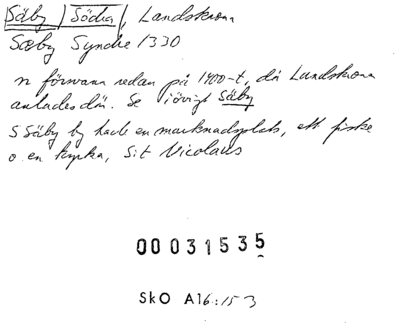 Säby, Södra, Landskrona
Sæby Syndre 1330
n försvann redan på 1400-t, då Landskrona
anlades där. Se i övrigt Säby
S Säby by hade en marknadsplats, ett fiske
o. en kyrka, S:t Nicolaus
00031535
SkO A16:153